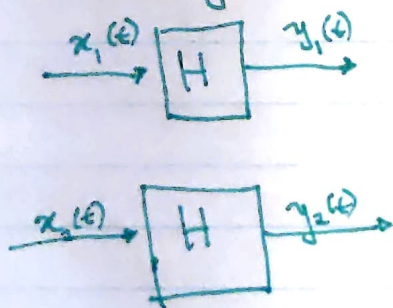 x₁(t) H y₁(t)
x₂(t) H y₂(t)